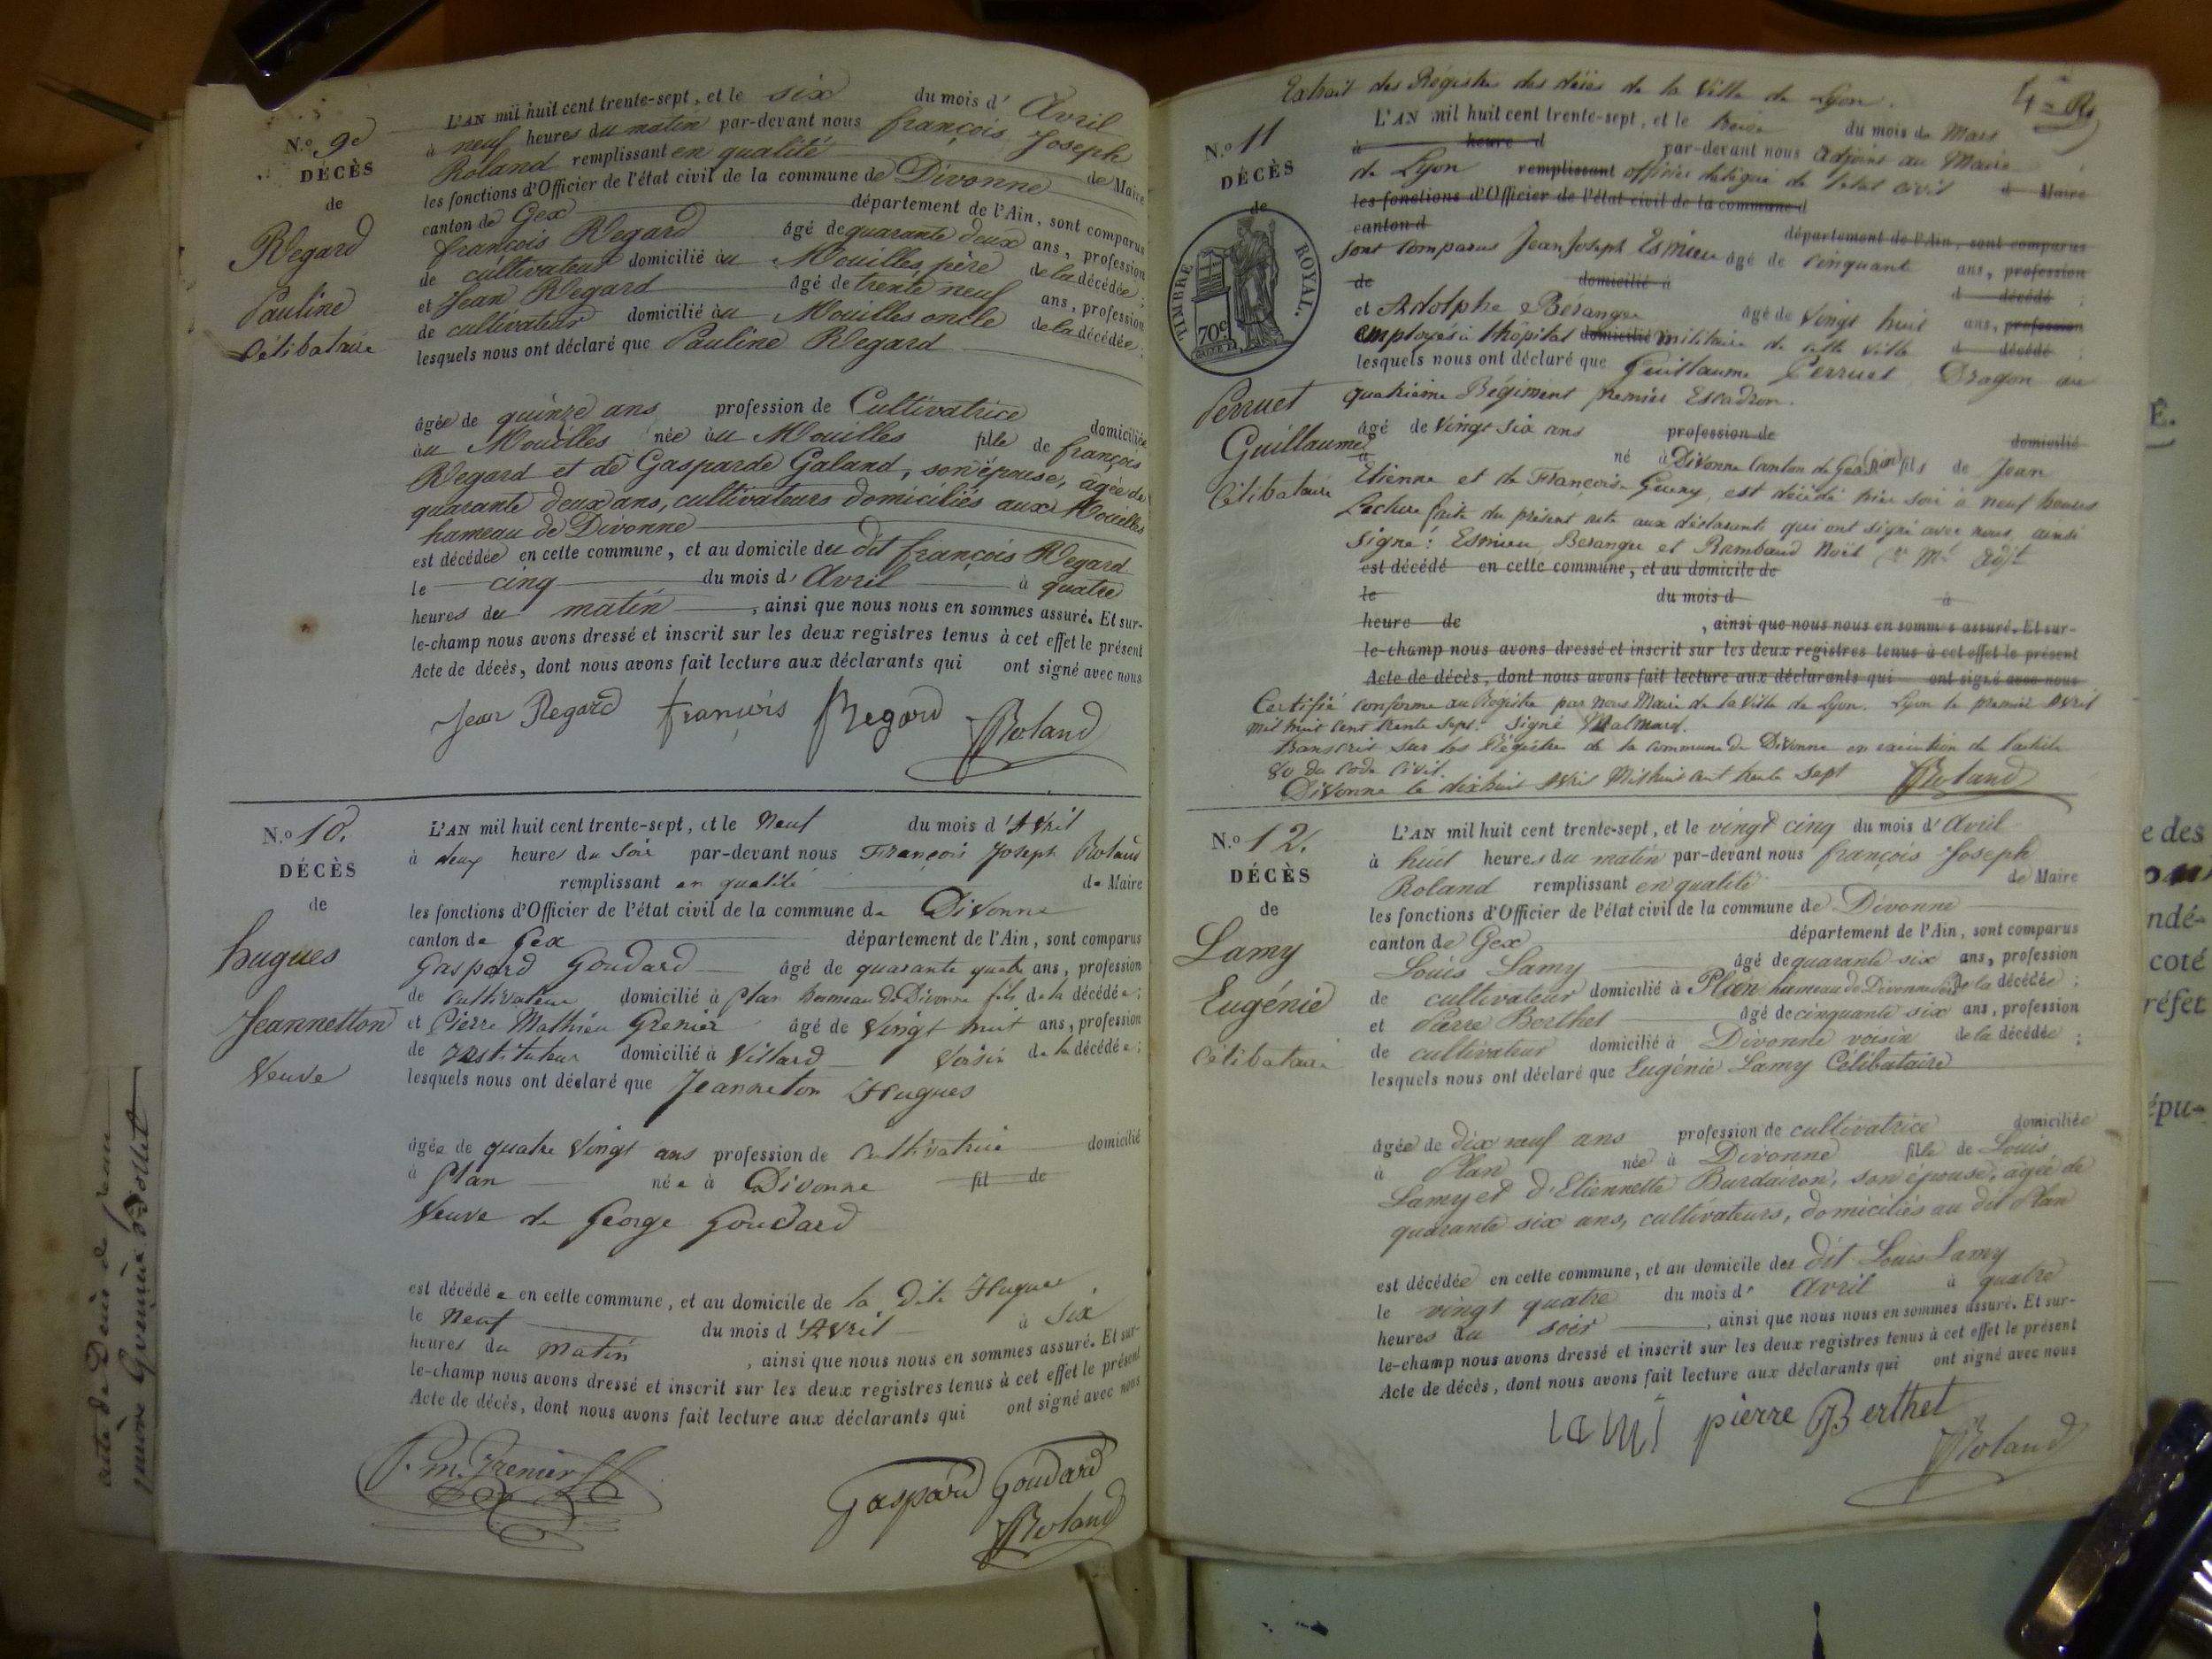 N.o 9e
DÉCÈS
de
Regard
Pauline
Célibataire
L'AN mil huit cent trente-sept, et le six du mois d' Avril
à neuf heures du matin par-devant nous françois Joseph
Roland remplissant en qualité de Maire
les fonctions d'Officier de l'état civil de la commune de Divonne
canton de Gex département de l'Ain, sont comparus
françois Regard âgé de quarante deux ans, profession
de cultivateur domicilié au Mouilles père de la décédée;
et Jean Regard âgé de trente neuf ans, profession
de cultivateur domicilié au Mouilles oncle de la décédée;
lesquels nous ont déclaré que Pauline Regard
âgée de quinze ans profession de Cultivatrice domiciliée
au Mouilles née au Mouilles fille de françois
Regard et de Gasparde Galand, son épouse, âgée de
quarante deux ans, cultivateurs domiciliés aux Mouilles
hameau de Divonne
est décédée en cette commune, et au domicile du dit françois Regard
le cinq du mois d' Avril à quatre
heures du matin, ainsi que nous nous en sommes assuré. Et sur-
le-champ nous avons dressé et inscrit sur les deux registres tenus à cet effet le présent
Acte de décès, dont nous avons fait lecture aux déclarants qui ont signé avec nous
Jean Regard françois Regard Roland
N.o 10.
DÉCÈS
de
hugues
Jeannetton
Veuve
L'AN mil huit cent trente-sept, et le Neuf du mois d'Avril
à deux heures du Soir par-devant nous François Joseph Roland
remplissant en qualité de Maire
les fonctions d'Officier de l'état civil de la commune de Divonne
canton de Gex département de l'Ain, sont comparus
Gaspard Goudard âgé de quarante quatre ans, profession
de Cultivateur domicilié à Plan hameau de Divonne fils de la décédée;
et Pierre Mathieu Grenier âgé de Vingt huit ans, profession
de Instituteur domicilié à Villard Voisin de la décédée;
lesquels nous ont déclaré que Jeanneton Hugues
âgée de quatre Vingt ans profession de Cultivatrice domicilié
à Plan née à Divonne fil de
Veuve de George Goudard
est décédée en cette commune, et au domicile de la dite Hugues
le Neuf du mois d'Avril à Six
heures du Matin, ainsi que nous nous en sommes assuré. Et sur-
le-champ nous avons dressé et inscrit sur les deux registres tenus à cet effet le présent
Acte de décès, dont nous avons fait lecture aux déclarants qui ont signé avec nous
P. m. Grenier Gaspard Goudard
Roland
Extrait des Régistres des décès de la Ville de Lyon.
N.o 11
DÉCÈS
de
TIMBRE ROYAL.
70c
Perruet
Guillaume
Célibataire
L'AN mil huit cent trente-sept, et le treize du mois de Mars
à heure d par-devant nous Adjoint au Maire
de Lyon remplissant officier délégué de l'état civil d Maire
les fonctions d'Officier de l'état civil de la commune d
canton d département de l'Ain, sont comparus
sont comparus Jean Joseph Esmieu âgé de cinquante ans, profession
de domicilié à d décédé;
et Adolphe Bésangu âgé de Vingt huit ans, profession
employés à l'hôpital domicilié militaire de cette Ville d décédé;
lesquels nous ont déclaré que Guillaume Perruet Dragon au
quatrième Régiment premier Escadron.
âgé de Vingt six ans profession de domicilié
à né à Divonne Canton de Gex (Ain) fils de Jean
Etienne et de Françoise Geny, est décédé hier soir à neuf heures
Lecture faite du présent acte aux déclarants qui ont signé avec nous, ainsi
signé: Esmieu, Besangu et Rambaud Noël Adjt
est décédé en cette commune, et au domicile de
le du mois d à
heure de, ainsi que nous nous en sommes assuré. Et sur-
le-champ nous avons dressé et inscrit sur les deux registres tenus à cet effet le présent
Acte de décès, dont nous avons fait lecture aux déclarants qui ont signé avec nous
Certifié conforme au Régistre par nous Maire de la Ville de Lyon. Lyon le premier Avril
mil huit cent trente sept. Signé
Transcrit sur les Régistres de la commune de Divonne en exécution de l'article
80 du Code Civil.
Divonne le dix huit Avril Mil huit cent trente sept Roland
N.o 12.
DÉCÈS
de
Lamy
Eugénie
Célibataire
L'AN mil huit cent trente-sept, et le vingt cinq du mois d' Avril
à huit heures du matin par-devant nous françois Joseph
Roland remplissant en qualité de Maire
les fonctions d'Officier de l'état civil de la commune de Divonne
canton de Gex département de l'Ain, sont comparus
Louis Lamy âgé de quarante six ans, profession
de cultivateur domicilié à Plan hameau de Divonne père de la décédée;
et Pierre Berthet âgé de cinquante six ans, profession
de cultivateur domicilié à Divonne voisin de la décédée;
lesquels nous ont déclaré que Eugénie Lamy Célibataire
âgée de dix neuf ans profession de cultivatrice domiciliée
à Plan née à Divonne fille de Louis
Lamy et d'Etiennette Burdairon, son épouse, âgée de
quarante six ans, cultivateurs, domiciliés au dit Plan
est décédée en cette commune, et au domicile du dit Louis Lamy
le vingt quatre du mois d' Avril à quatre
heures du soir, ainsi que nous nous en sommes assuré. Et sur-
le-champ nous avons dressé et inscrit sur les deux registres tenus à cet effet le présent
Acte de décès, dont nous avons fait lecture aux déclarants qui ont signé avec nous
lami pierre Berthet
Roland